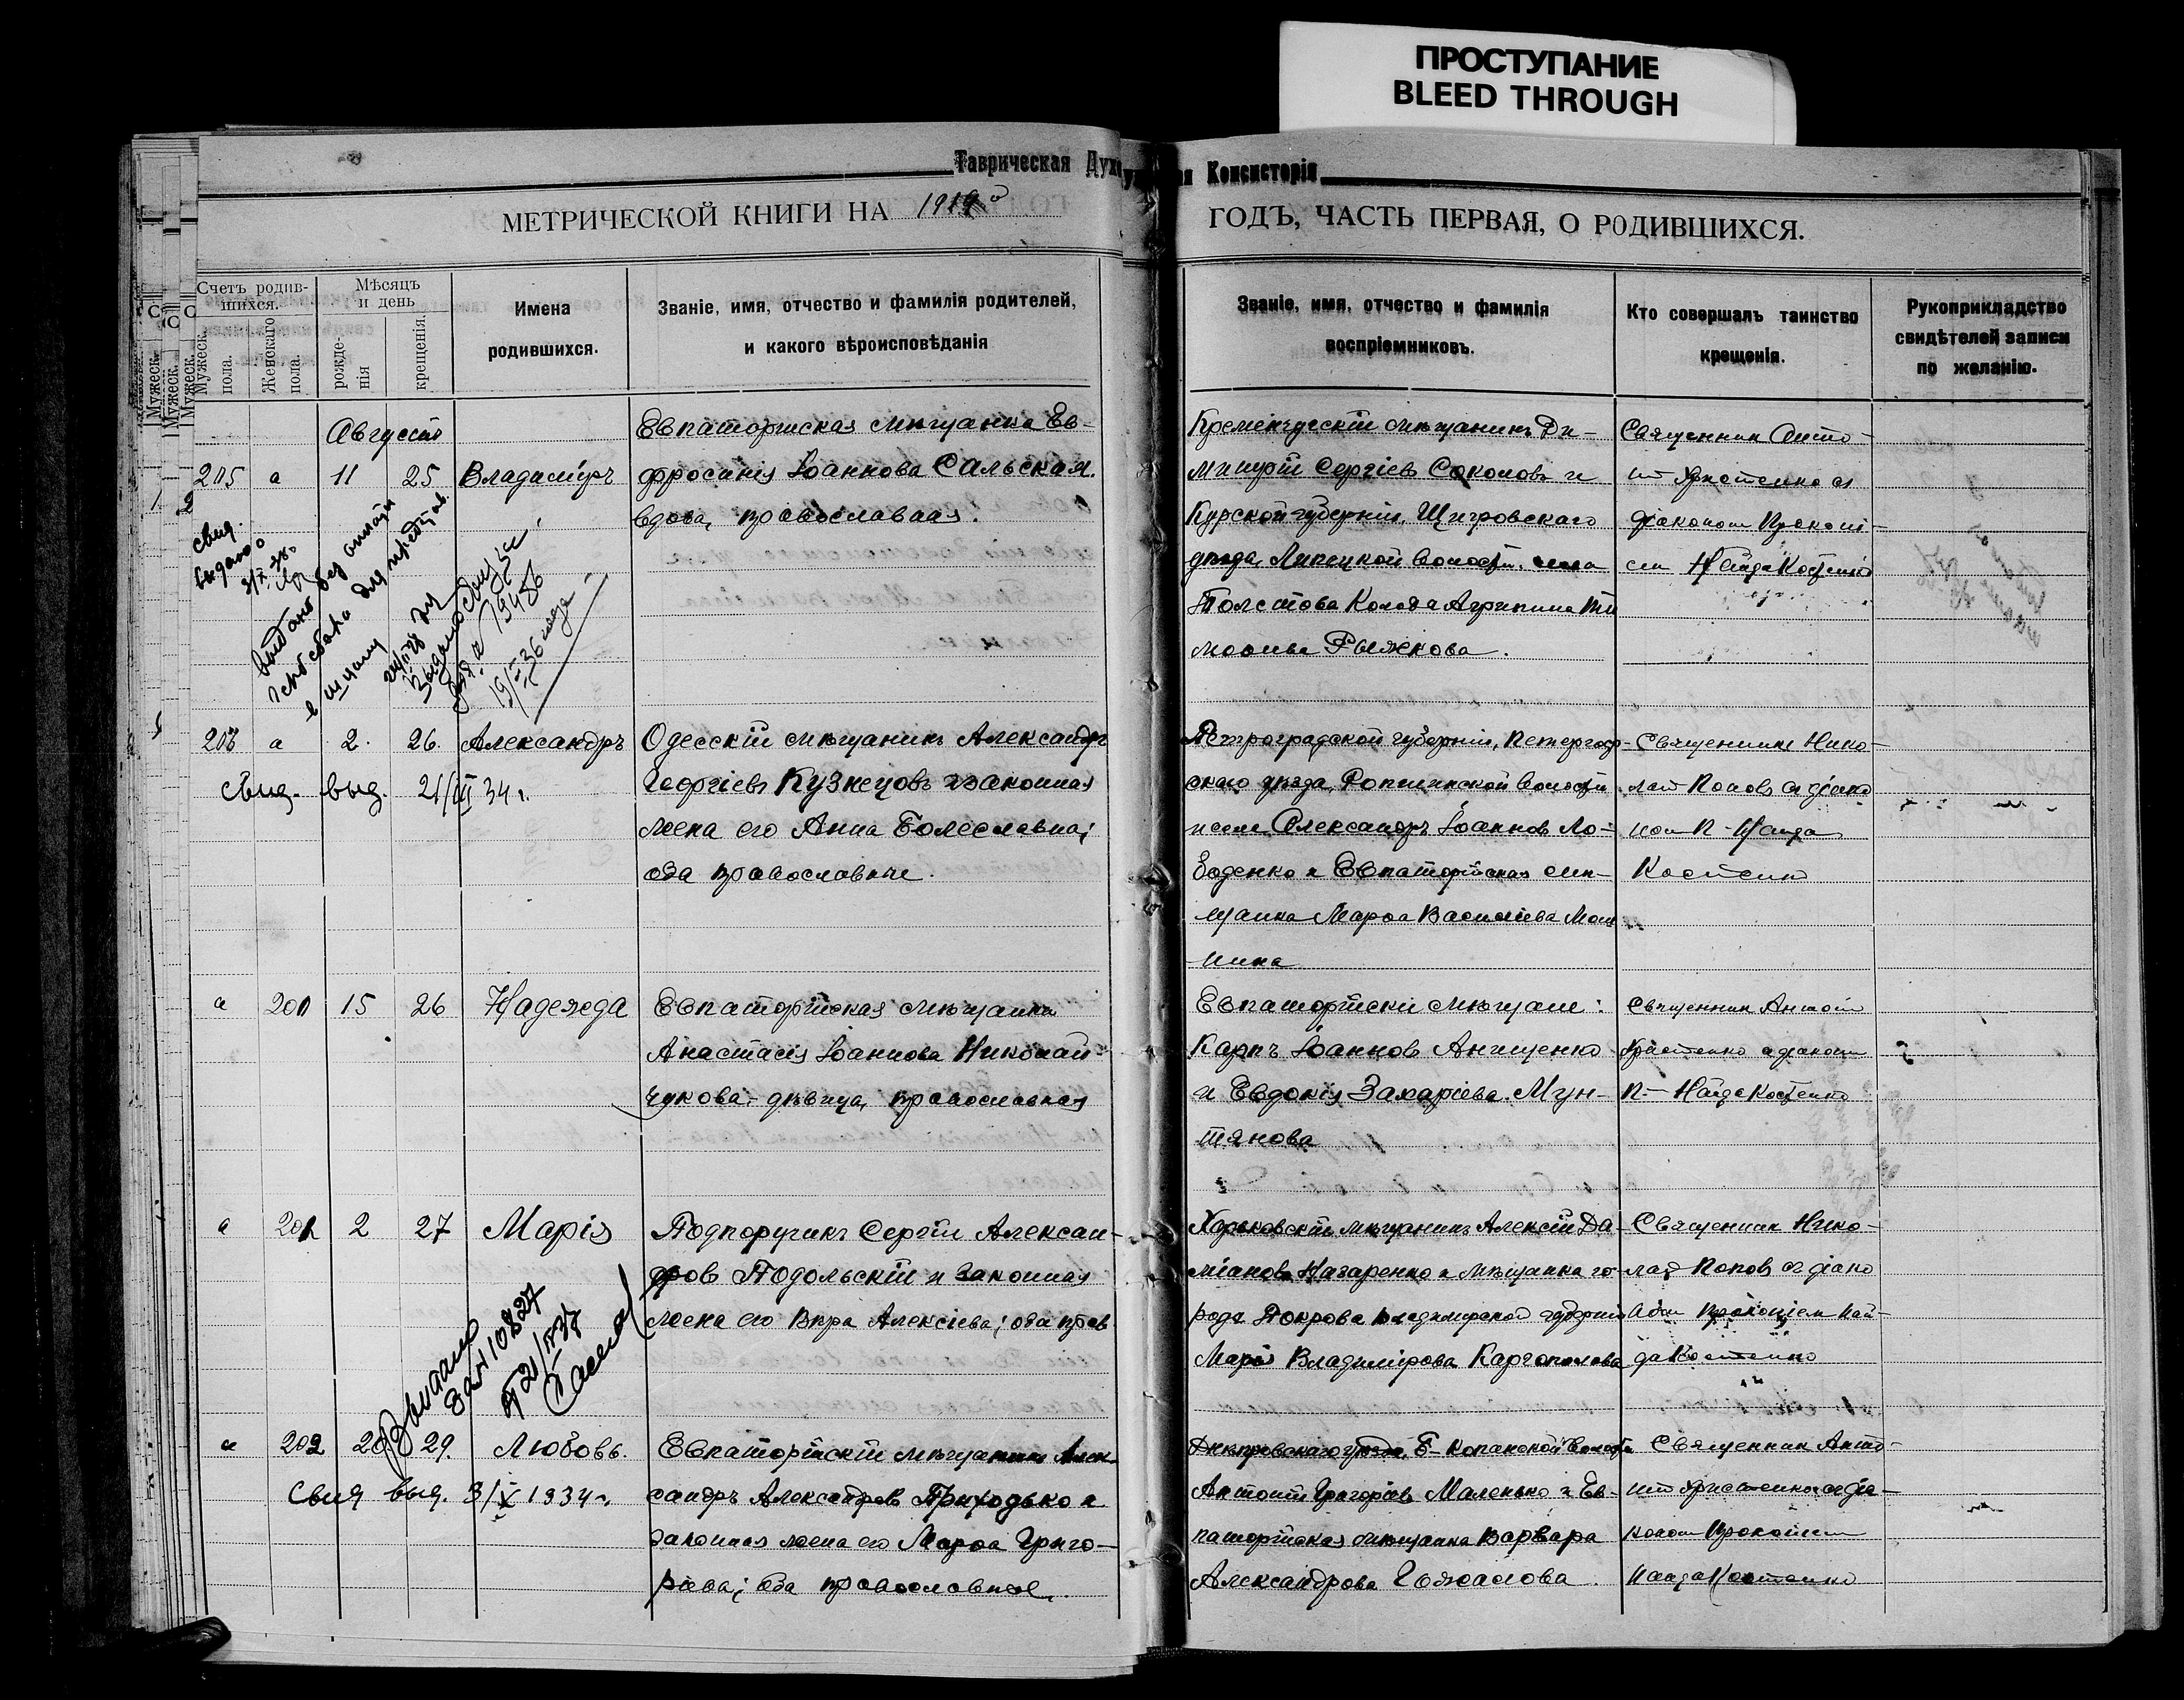 ПРОСТУПАНИЕ
BLEED THROUGH
Таврическая Духовная Консисторія
МЕТРИЧЕСКОЙ КНИГИ НА 1919й ГОДЪ, ЧАСТЬ ПЕРВАЯ, О РОДИВШИХСЯ.
Счетъ родив-
шихся.
Мужеск.
пола.
Женскаго
пола.
Мѣсяцъ
и день
рожде-
нія
крещенія.
Имена
родившихся.
Званіе, имя, отчество и фамилія родителей,
и какого вѣроисповѣданія
Званіе, имя, отчество и фамилія
воспріемниковъ.
Кто совершалъ таинство
крещенія.
Рукоприкладство
свидѣтелей записи
по желанію.
Августъ
205 а 11 25 Владиміръ
Евпаторійская мѣщанка Ев-
фросинія Іоаннова Сальская.
вдова, православная.
Кременчугскій мѣщанинъ Ди-
митрій Сергіевъ Соколовъ и
Курской губерніи, Щигровскаго
уѣзда, Липецкой волости, села
Толстова Колодa Агрипина Ти
моѳиева Рыжкова.
Священник Анто-
ній Христенко съ
діакономъ Прокопі-
ем Найда Костенко
свид.
выдано
Выдано без оплаты
герб сбора для представ.
в школу
Выдано
19486
19/III 36 года
а 2. 26. Александръ
свид. выд. 21/III 34 г.
Одесскій мѣщанинъ Александръ
Георгіевъ Кузнецовъ и законная
жена его Анна Болеславна;
оба православные.
Петроградской губерніи, Петергоф-
скаго уѣзда, Ропшинской волости
Александръ Іоанновъ Ло-
боденко и Евпаторійская мѣ-
щанка Марѳа Васильева Мош
нина
Священникъ Нико-
лай Поповъ съ діако
номъ П. Найда
Костенко
а 201 15 26 Надежда
Евпаторійская мѣщанка
Анастасія Іоаннова Николай-
чукова, дѣвица, православная
Евпаторійскіи мѣщане:
Карпъ Іоанновъ Анищенко
и Евдокія Захаріева Мун-
тянова
Священник Антоній
Христенко съ діакономъ
П. Найда Костенко
а 2 27 Марія
Подпоручикъ Сергій Алексан-
дровъ Подольскій и законная
жена его Вѣра Алексіева; оба прав
Харьковскій мѣщанинъ Алексій Да-
міановъ Назаренко и мѣщанка го-
рода Покрова Владимирской губерніи
Марія Владимірова Каргополова
Священник Нико-
лай Поповъ съ діако
номъ Прокопіем Най-
да Костенко
Выдано
10827
а 202 20 29. Любовь.
Свид выд. 3/X 1934 г.
Евпаторійскій мѣщанинъ Алек-
сандръ Александровъ Приходько и
законная жена его Марѳа Григо-
ріева; оба православные.
Днѣпровскаго уѣзда, Б-Копанской волости
Антоній Григоріевъ Маленько и Ев-
паторійская мѣщанка Варвара
Александрова
Священник Анто-
ній Христенко съ діа-
кономъ Прокопіем
Найда Костенко